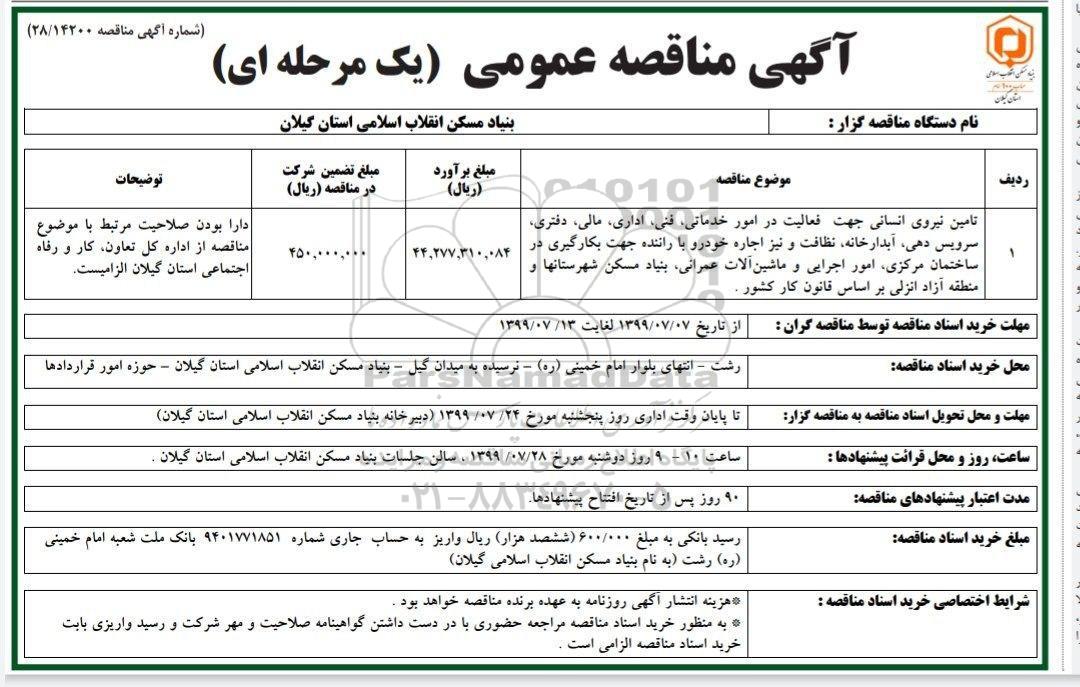 (شماره آگهی مناقصه ۲۸/۱۴۲۰۰)
آگهی مناقصه عمومی (یک مرحله ای)
بنیاد مسکن انقلاب اسلامی
استان گیلان
نام دستگاه مناقصه گزار : بنیاد مسکن انقلاب اسلامی استان گیلان
ردیف موضوع مناقصه مبلغ برآورد (ریال) مبلغ تضمین شرکت در مناقصه (ریال) توضیحات
۱
تامین نیروی انسانی جهت فعالیت در امور خدماتی، فنی، اداری، مالی، دفتری،
سرویس دهی، آبدارخانه، نظافت و نیز اجاره خودرو با راننده جهت بکارگیری در
ساختمان مرکزی، امور اجرایی و ماشین‌آلات عمرانی، بنیاد مسکن شهرستانها و
منطقه آزاد انزلی بر اساس قانون کار کشور .
۴۴,۲۷۷,۳۱۰,۰۸۴
۴۵۰,۰۰۰,۰۰۰
دارا بودن صلاحیت مرتبط با موضوع
مناقصه از اداره کل تعاون، کار و رفاه
اجتماعی استان گیلان الزامیست.
مهلت خرید اسناد مناقصه توسط مناقصه گران : از تاریخ ۱۳۹۹/۰۷/۰۷ لغایت ۱۳/ ۱۳۹۹/۰۷
محل خرید اسناد مناقصه: رشت - انتهای بلوار امام خمینی (ره) – نرسیده به میدان گیل – بنیاد مسکن انقلاب اسلامی استان گیلان – حوزه امور قراردادها
ParsNamadData
مهلت و محل تحویل اسناد مناقصه به مناقصه گزار: تا پایان وقت اداری روز پنجشنبه مورخ ۲۴/ ۰۷/ ۱۳۹۹ (دبیرخانه بنیاد مسکن انقلاب اسلامی استان گیلان)
ساعت، روز و محل قرائت پیشنهادها : ساعت ۱۰ - ۹ روز دوشنبه مورخ ۰۷/۲۸/ ۱۳۹۹ ، سالن جلسات بنیاد مسکن انقلاب اسلامی استان گیلان .
مدت اعتبار پیشنهادهای مناقصه: ۹۰ روز پس از تاریخ افتتاح پیشنهادها.
۰۲۱-۸۸۳۴۹۶۷۰-۵
مبلغ خرید اسناد مناقصه: رسید بانکی به مبلغ ۶۰۰/۰۰۰ (ششصد هزار) ریال واریز به حساب جاری شماره ۹۴۰۱۷۷۱۸۵۱ بانک ملت شعبه امام خمینی
(ره) رشت (به نام بنیاد مسکن انقلاب اسلامی گیلان)
شرایط اختصاصی خرید اسناد مناقصه : *هزینه انتشار آگهی روزنامه به عهده برنده مناقصه خواهد بود .
* به منظور خرید اسناد مناقصه مراجعه حضوری با در دست داشتن گواهینامه صلاحیت و مهر شرکت و رسید واریزی بابت
خرید اسناد مناقصه الزامی است .